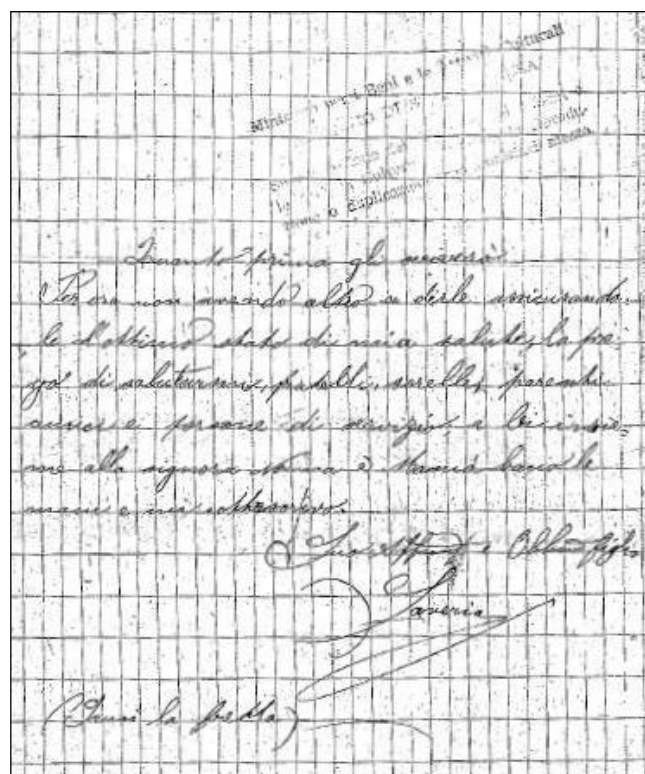 Ministero per i Beni e le Attività Culturali
o duplicazioni
Quanto prima gli scriverò
Per ora non avendo altro a dirle assicurando-
le l'ottimo stato di mia salute, la pre-
go di salutarmi, fratelli, sorelle, parenti
amici e persone di servizio, a lei insie-
me alla signora Nonna e Mamà bacio le
mani e mi sottoscrivo.
Suo Affmo e Obblmo figlio
Saverio
(Scusi la fretta)